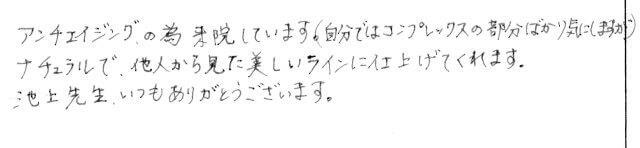 アンチエイジングの為来院しています。(自分ではコンプレックスの部分ばかり気にしますが)
ナチュラルで、他人から見た美しいラインに仕上げてくれます。
池上先生、いつもありがとうございます。